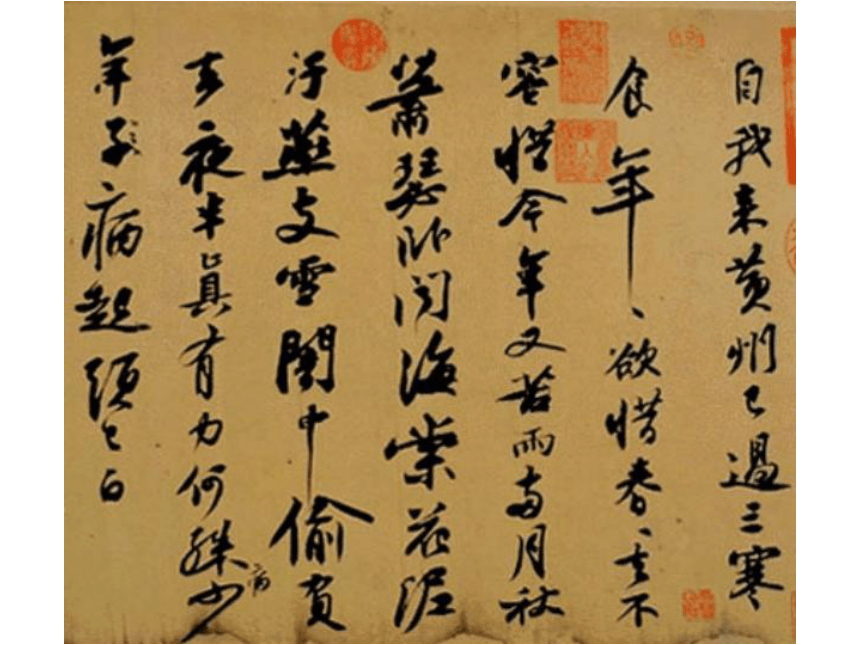 自我來黃州已過三寒
食年、欲惜春、去不
容惜今年又苦雨兩月秋
蕭瑟臥聞海棠花泥
汙燕支雪闇中偷負
去夜半真有力何殊病少
年子病起頭已白